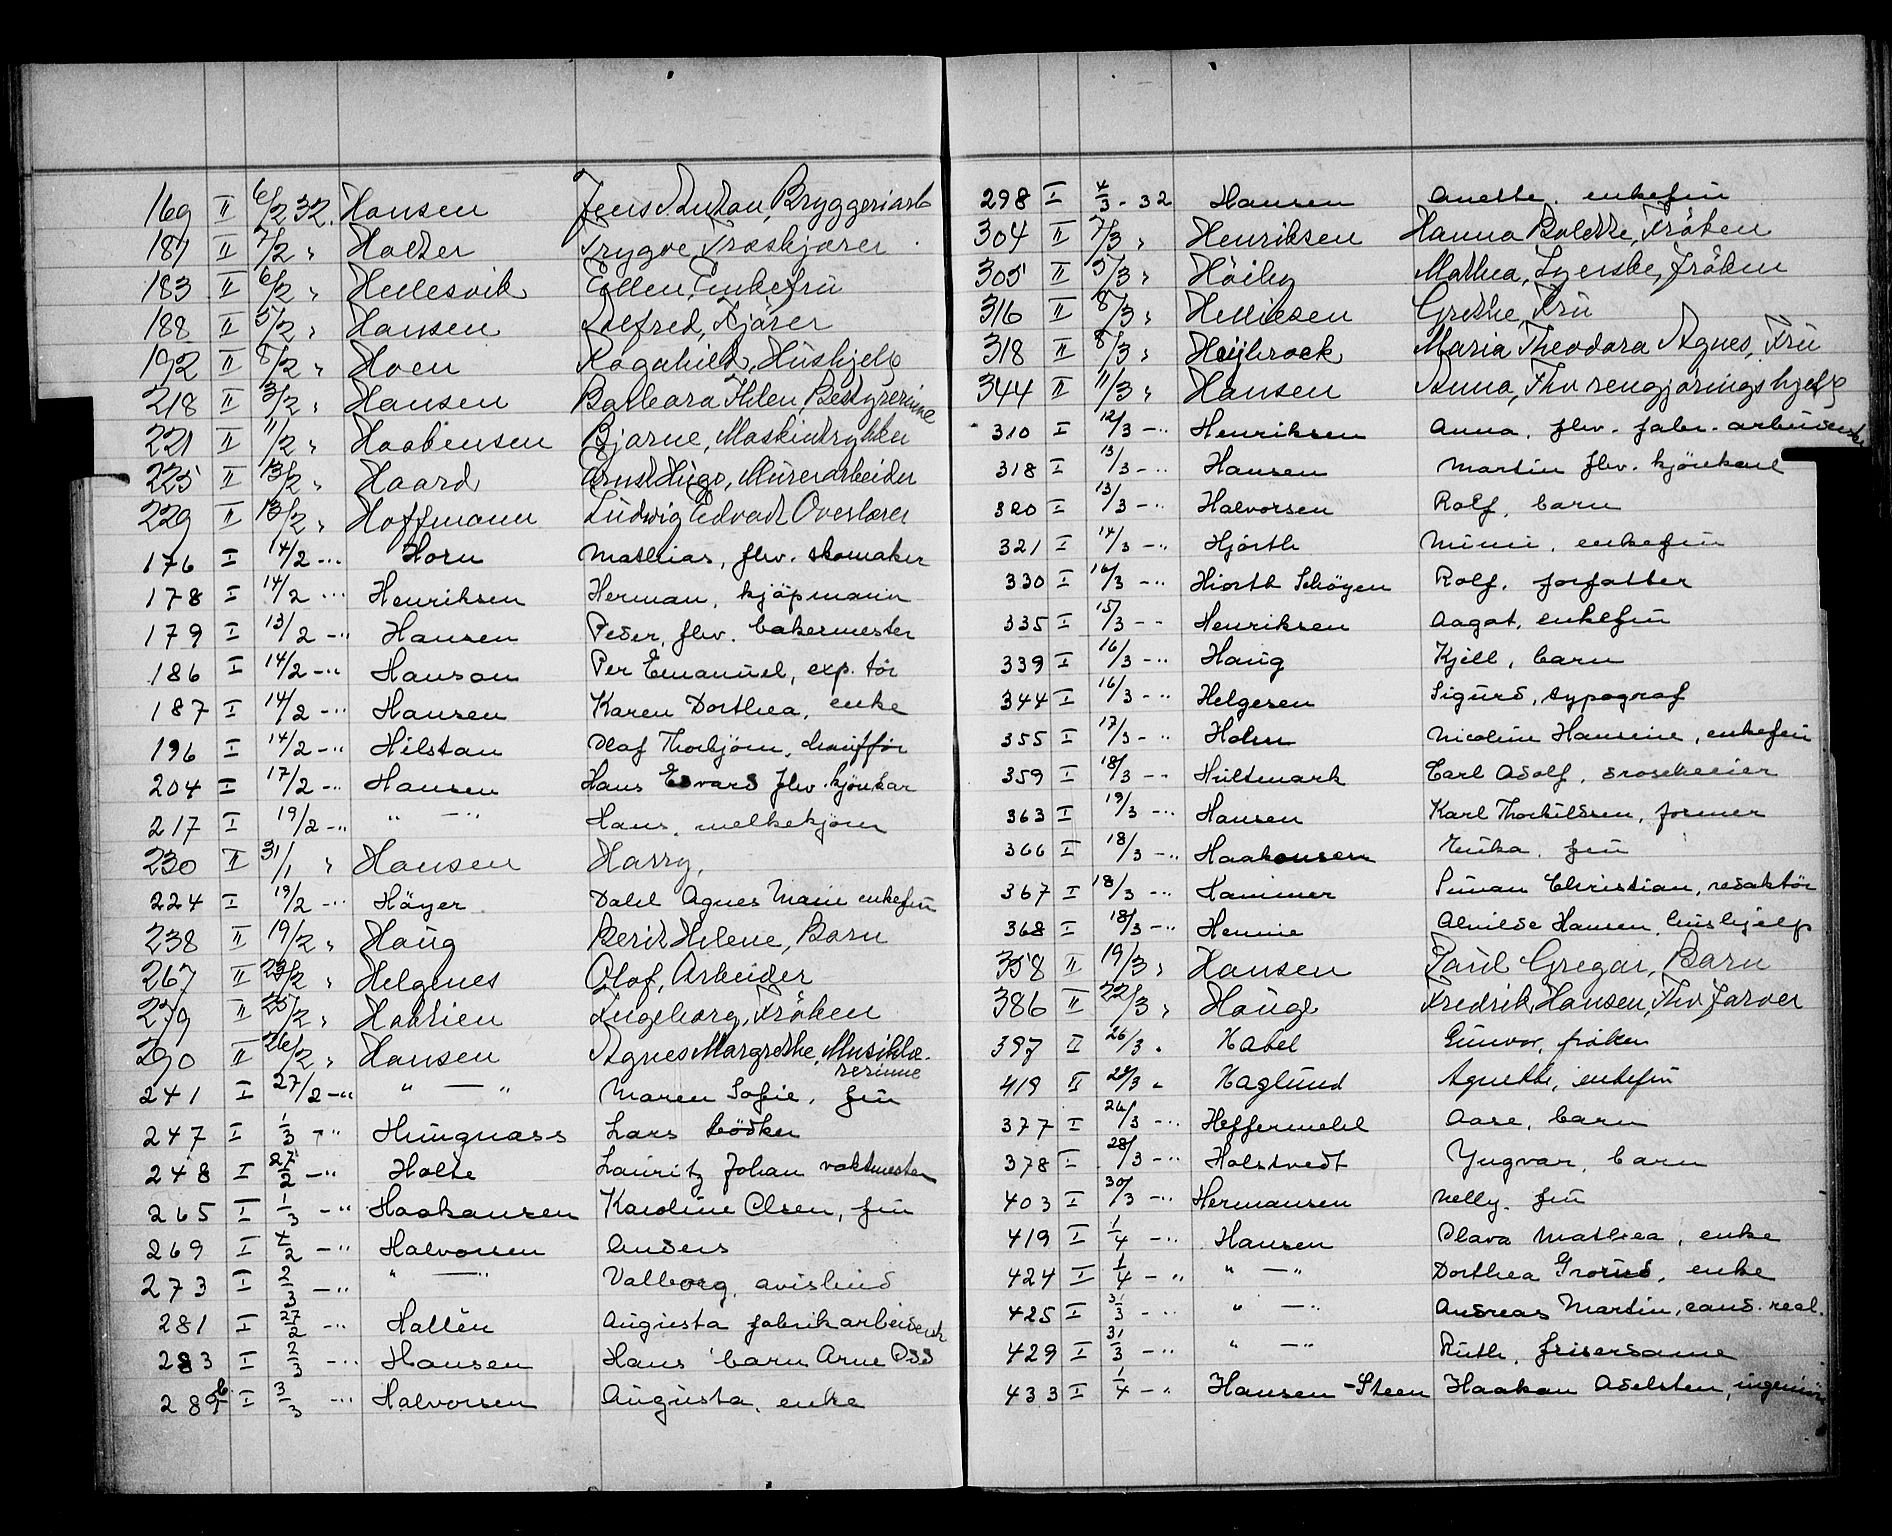 169 II 6/2 32. Hansen Jens Anton, Bryggeriarb
181 II 7/2 " Holter Trygve, Træskjærer
183 II 6/2 " Hellesvik Ellen, Enkefru
188 II 5/2 " Hansen Alfred, Kjører
192 II 8/2 " Hoen Ragnhild, Hushjelp
218 II 3/2 " Hansen Barbara Thilen, Bestyrerinne
221 II 11/2 " Haakensen Bjarne, Maskintrykker
225 II 13/2 " Haard Ernst Hugo, Murerarbeider
229 II 13/2 " Hoffmann Ludvig Edvard Overlærer
176 I 14/2 -"- Horn Mathias, fhv. skomaker
178 I 14/2 -"- Henriksen Herman, kjöpmann
179 I 13/2 -"- Hansen Peder, fhv. bakermester
186 I 14/2 -"- Hanson Per Emanuel, exp. tör
187 I 14/2 -"- Hansen Karen Dorthea, enke
196 I 14/2 -"- Hilstan Olaf Thorbjörn, chaufför
204 I 17/2 -"- Hansen Hans Edvard fhv. kjörekar
217 I 19/2 -"- " — " Hans, melkekjörer
230 II 31/1 " Hansen Harry,
224 I 19/2 -"- Höyer Dahl Agnes Marie enkefru
238 II 19/2 " Haug Berit Helene, Barn
267 II 23/2 " Helgenes Olaf, Arbeider
279 II 25/2 " Ingeborg, Frøken
290 II 26/2 " Hansen Agnes Margrethe, Musiklæ-
rerinne
241 I 27/2 -"- " — " Maren Sofie, fru
247 I 1/3 -"- Hungnass Lars bödker
248 I 27/2 -"- Holte Lauritz Johan vaktmester
265 I 1/3 -"- Haakansen Karoline Olsen, fru
269 I 4/2 -"- Halvorsen Anders
273 I 2/3 -"- " — " Valborg, avisbud
281 I 27/2 -"- Hallén Augusta fabrikarbeidersk
283 I 2/3 -"- Hansen Hans barn Arne Odd
289 b I 3/3 -"- Halvorsen Augusta, enke
298 I 4/3 - 32 Hansen Anette, enkefru
304 II 7/3 " Henriksen Hanna Bolette, Frøken
305 II 5/3 " Höiby Mathea, Syerske, Frøken
316 II 8/3 " Helliesen Grethe, Fru
318 II 8/3 " Heijbroek Maria Theodora Agnes, Fru
344 II 11/3 " Hansen Anna, Fhv rengjøringshjelp
310 I 12/3 -"- Henriksen Anna, fhv. fabr. arbeiderske
318 I 13/3 -"- Hansen Martin fhv. kjörekarl
320 I 13/3 -"- Halvorsen Rolf, barn
321 I 14/3 -"- Hjörth Mimi, enkefru
330 I 16/3 -"- Hiorth Schöyen Rolf, forfatter
335 I 15/3 - - Henriksen Aagot, enkefru
339 I 16/3 -"- Haug Kjell, barn
344 I 16/3 -"- Helgesen Sigurd, typograf
355 I 17/3 -"- Holm Nicoline Hansine, enkefru
359 I 18/3 - - Hultmark Carl Adolf, droscheeier
363 I 19/3 -"- Hansen Karl Thorkildsen, former
366 I 18/3 -"- Haakonsen Erika, fru
367 I 18/3 -"- Hammer Simon Christian, redaktör
368 I 18/3 -"- Hennie Alvilde Hansen, hushjelp
358 II 19/3 " Hansen Paul Gregar, Barn
386 II 22/3 " Hauge Fredrik Hansen, Fhv Farver
397 II 26/3 " Habel Gunvor, frøken
419 II 29/3 " Haglund Agnethe, enkefru
377 I 26/3 -"- Heffermehl Aase, barn
378 I 28/3 -"- Holstvedt Yngvar, barn
403 I 30/3 -"- Hermansen Nelly, fru
419 I 1/4 -"- Hansen Olava Mathea, enke
424 I 1/4 -"- " — " Dorthea Grorud, enke
425 I 31/3 -"- " — " Andreas Martin, cand. real.
429 I 31/3 -"- " — " Ruth, friserdame
433 I 1/4 -"- Hansen-Steen Haakon Adelsten, ingeniör